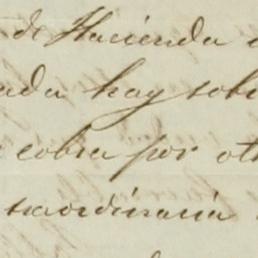 de Hacienda
nada hay sob
cobra por ot
traordinaria